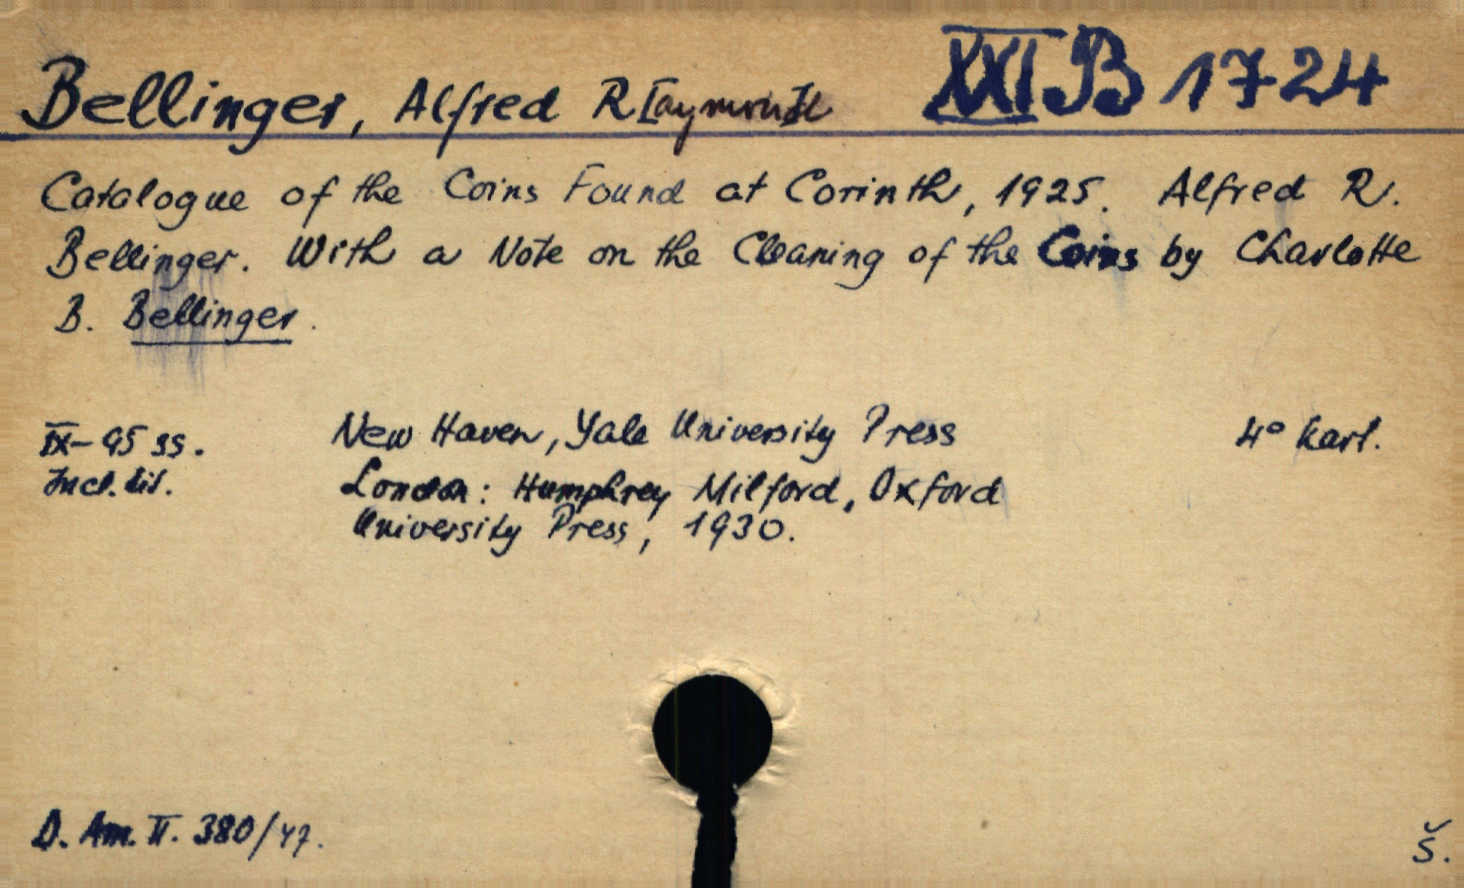 XXI B 1724
Bellinger, Alfred R[aymond]
Catalogue of the Coins Found at Corinth, 1925. Alfred R.
Bellinger. With a Note on the Cleaning of the Coins by Charlotte
B. Bellinger.
IX-95 ss. New Haven, Yale University Press 4° kart.
Incl. tit. London: Humphrey Milford, Oxford
University Press, 1930.
D. Am. II. 380/47.
Š.